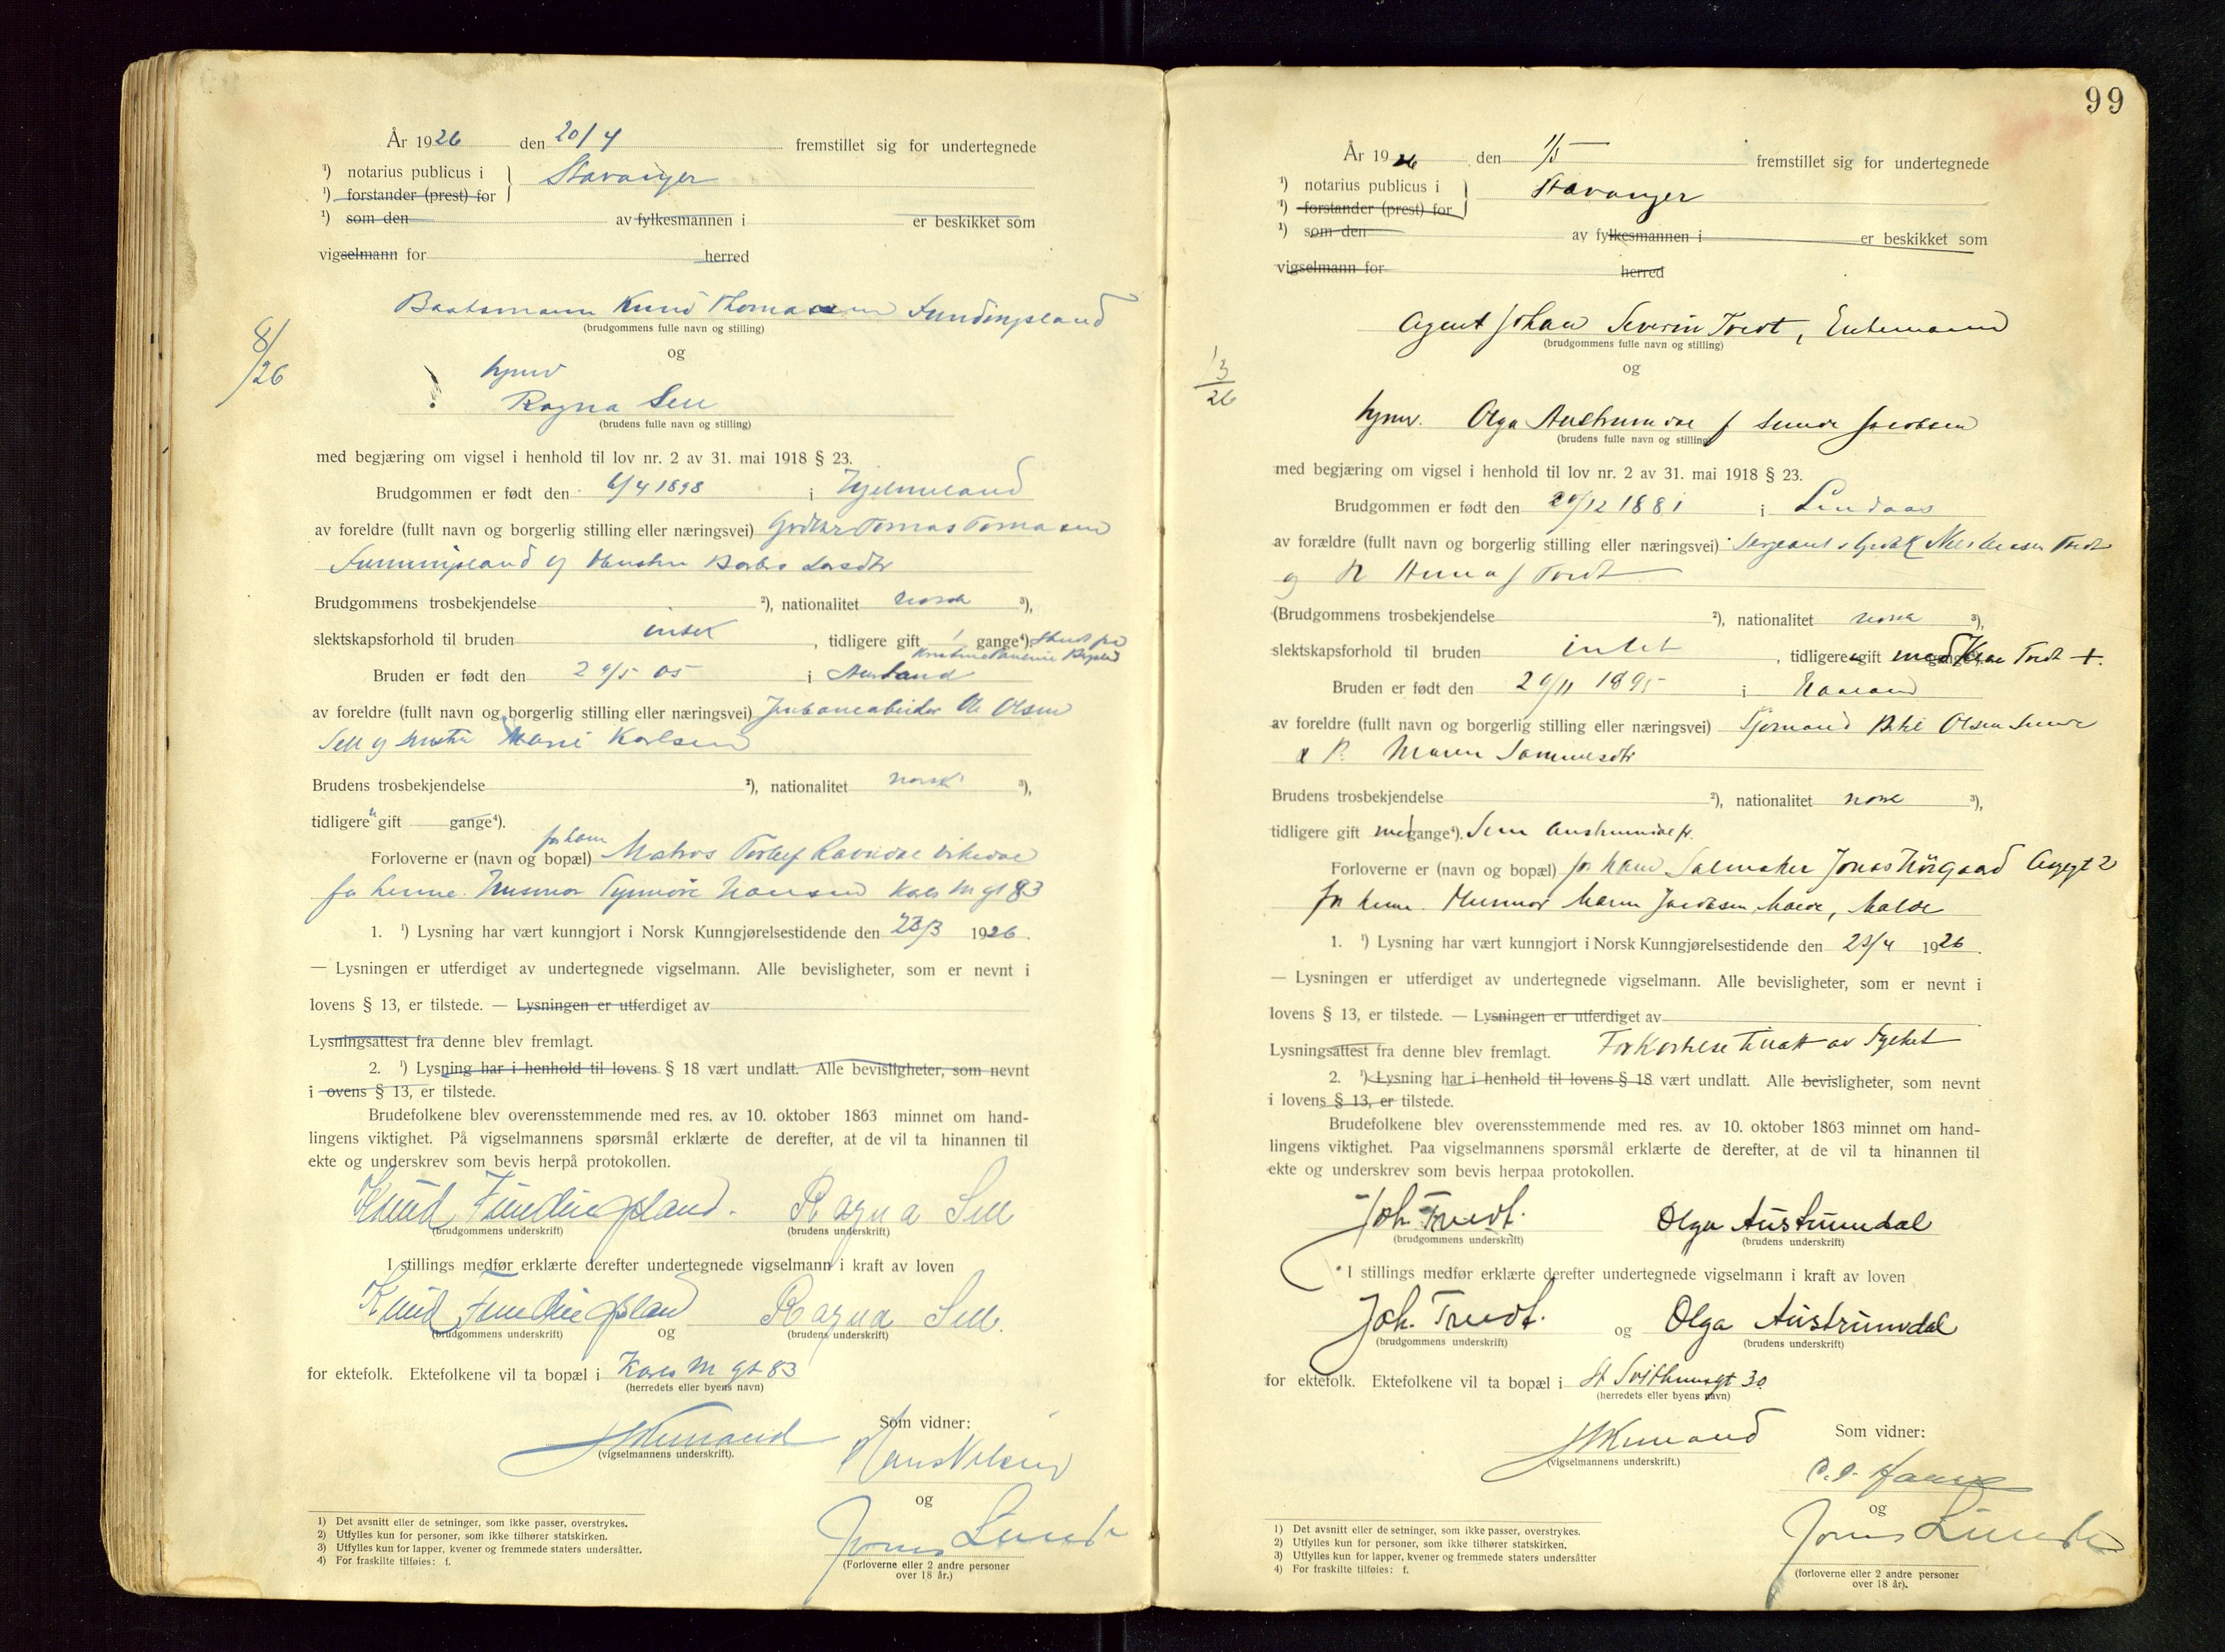 År 1926 den 20/4 fremstillet sig for undertegnede
¹) notarius publicus i
Stavanger
¹) forstander (prest) for
¹) som den av fylkesmannen i er beskikket som
vigselmann for herred
Baatsmann Knud Thomassen Fundingsland
(brudgommens fulle navn og stilling)
og
8/26
hjmv
Ragna Sell
(brudens fulle navn og stilling)
med begjæring om vigsel i henhold til lov nr. 2 av 31. mai 1918 § 23.
Brudgommen er født den 6/4 1898 i Hjelmeland
av foreldre (fullt navn og borgerlig stilling eller næringsvei) Tomas
og Hustru
Brudgommens trosbekjendelse ²), nationalitet norsk ³),
slektskapsforhold til bruden intet , tidligere gift 1 gange⁴).
Bruden er født den 29/5 05 i
av foreldre (fullt navn og borgerlig stilling eller næringsvei) Jernbanearbeider Ole Olsen
Sell og hustru Marie Karlsen
Brudens trosbekjendelse ²), nationalitet norsk ³),
tidligere u gift gange⁴).
for ham
Forloverne er (navn og bopæl) Matros
for henne. Husmor Hansen Karls M gt 83
1. ¹) Lysning har vært kunngjort i Norsk Kunngjørelsestidende den 23/3 1926.
— Lysningen er utferdiget av undertegnede vigselmann. Alle bevisligheter, som er nevnt i
lovens § 13, er tilstede. — Lysningen er utferdiget av
Lysningsattest fra denne blev fremlagt.
2. ¹) Lysning har i henhold til lovens § 18 vært undlatt. Alle bevisligheter, som nevnt
i ovens § 13, er tilstede.
Brudefolkene blev overensstemmende med res. av 10. oktober 1863 minnet om hand-
lingens viktighet. På vigselmannens spørsmål erklærte de derefter, at de vil ta hinannen til
ekte og underskrev som bevis herpå protokollen.
Knud Fundingsland. Ragna Sell
(brudgommens underskrift) (brudens underskrift)
I stillings medfør erklærte derefter undertegnede vigselmann i kraft av loven
Knud Fundingsland Ragna Sell.
(brudgommens underskrift) og (brudens underskrift)
for ektefolk. Ektefolkene vil ta bopæl i Karls M gt 83
(herredets eller byens navn)
Som vidner:
(vigselmannens underskrift).
Hans Nilsen
og
Jonas Lunde
(Forloverne eller 2 andre personer
over 18 år.)
1) Det avsnitt eller de setninger, som ikke passer, overstrykes.
2) Utfylles kun for personer, som ikke tilhører statskirken.
3) Utfylles kun for lapper, kvener og fremmede staters undersåtter.
4) For fraskilte tilføies: f.
99
År 1926 den 1/5 fremstillet sig for undertegnede
¹) notarius publicus i
Stavanger
¹) forstander (prest) for
¹) som den av fylkesmannen i er beskikket som
vigselmann for herred
Agent Johan Severin Tvedt, Enkemann
(brudgommens fulle navn og stilling)
og
13/26
hjmv. Olga Austrumdal f Sunde Jacobsen
(brudens fulle navn og stilling)
med begjæring om vigsel i henhold til lov nr. 2 av 31. mai 1918 § 23.
Brudgommen er født den 20/12 1881 i Lindaas
av forældre (fullt navn og borgerlig stilling eller næringsvei) Sergeant Tvedt
og H Anna f Tvedt
(Brudgommens trosbekjendelse ²), nationalitet norsk ³),
slektskapsforhold til bruden intet , tidligere gift med Tvedt +.
Bruden er født den 29/11 1895 i Haaland
av foreldre (fullt navn og borgerlig stilling eller næringsvei) Sjømand Olsen Sunde
Maren Samuelsdtr
Brudens trosbekjendelse ²), nationalitet norsk ³),
tidligere gift med gange⁴). Austrumdal fr.
Forloverne er (navn og bopæl) for ham Salmaker Jonas
for henne. Husmor Maren Jacobsen Malde, Malde
1. ¹) Lysning har vært kunngjort i Norsk Kunngjørelsestidende den 23/4 1926.
— Lysningen er utferdiget av undertegnede vigselmann. Alle bevisligheter, som er nevnt i
lovens § 13, er tilstede. — Lysningen er utferdiget av
Lysningsattest fra denne blev fremlagt. Forkortelse tillatt av Fylket
2. ¹) Lysning har i henhold til lovens § 18 vært undlatt. Alle bevisligheter, som nevnt
i lovens § 13, er tilstede.
Brudefolkene blev overensstemmende med res. av 10. oktober 1863 minnet om hand-
lingens viktighet. Paa vigselmannens spørsmål erklærte de derefter, at de vil ta hinannen til
ekte og underskrev som bevis herpaa protokollen.
Joh. Tvedt. Olga Austrumdal
(brudgommens underskrift) (brudens underskrift)
I stillings medfør erklærte derefter undertegnede vigselmann i kraft av loven
Joh. Tvedt. og Olga Austrumdal
(brudgommens underskrift) (brudens underskrift)
for ektefolk. Ektefolkene vil ta bopæl i St Svithunsgt 30.
(herredets eller byens navn)
Som vidner:
(vigselmannens underskrift.)
og
Jonas Lunde
(forloverne eller 2 andre personer
over 18 år).
1) Det avsnitt eller de setninger, som ikke passer, overstrykes.
2) Utfylles kun for personer, som ikke tilhører statskirken.
3) Utfylles kun for lapper, kvener og fremmede staters undersåtter
4) For fraskilte tilføies: f.